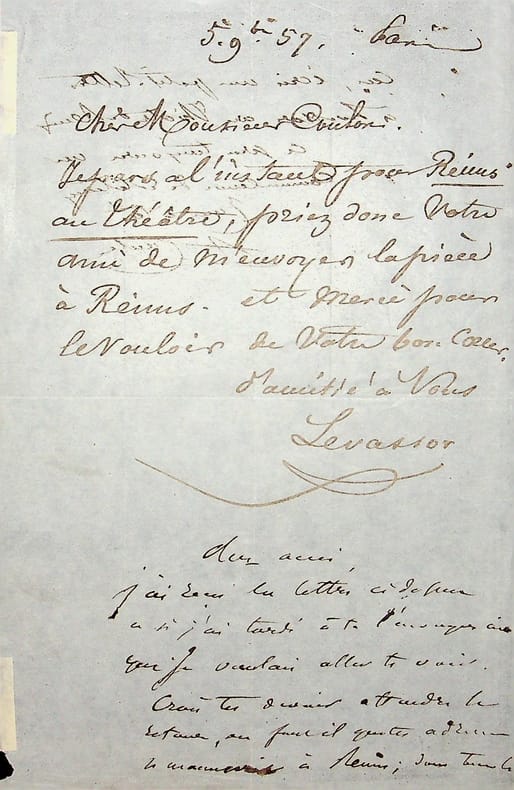 5. 9bre 57. Paris
Cher Monsieur Coulon.
Je pars a l'instant pour Reims
au théâtre, priez donc Votre
ami de m'envoyer la pièce
à Reims. et Merci pour
le Vouloir de Votre bon Cœur.
d'amitié à Vous
Levassor
ami,
j'ai reçu la lettre ci dessus
si j'ai tardé à te l'envoyer
que je voulais aller te voir.
Crois tu devoir attendre le
ou faut il que tu
manuscris à Reims;